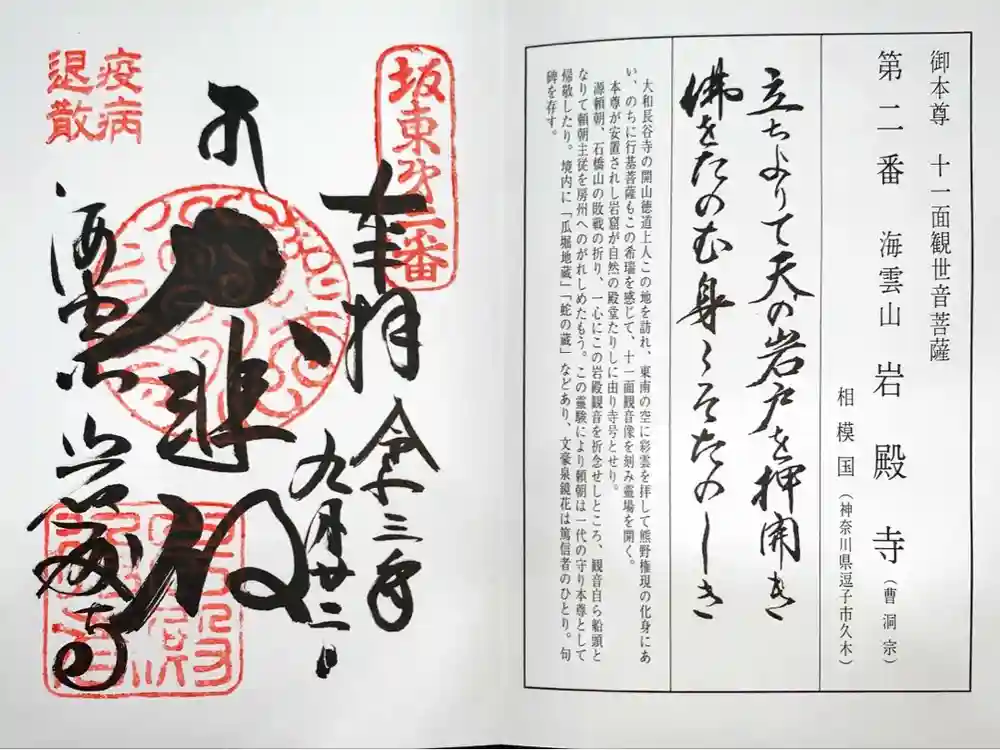 御本尊　十一面観世音菩薩
第二番　海雲山　岩殿寺（曹洞宗）
相模国（神奈川県逗子市久木）
立ちよりて天の岩戸を押開き
佛をたのむ身こそたのしき
大和長谷寺の開山徳道上人この地を訪れ、東南の空に彩雲を拝して熊野権現の化身にあ
い、のちに行基菩薩もこの希瑞を感じて、十一面観音像を刻み霊場を開く。
本尊が安置されし岩窟が自然の殿堂たりしに由り寺号とせり。
源頼朝、石橋山の敗戦の折り、一心にこの岩殿観音を祈念せしところ、観音自ら船頭と
なりて頼朝主従を房州へのがれしめたもう。この霊験により頼朝は一代の守り本尊として
帰敬したり。境内に「瓜堀地蔵」「蛇の蔵」などあり、文豪泉鏡花は篤信者のひとり。句
碑を存す。
坂東第二番
奉拝　令和三年
九月廿二日
大悲殿
海雲山岩殿寺
疫病
退散